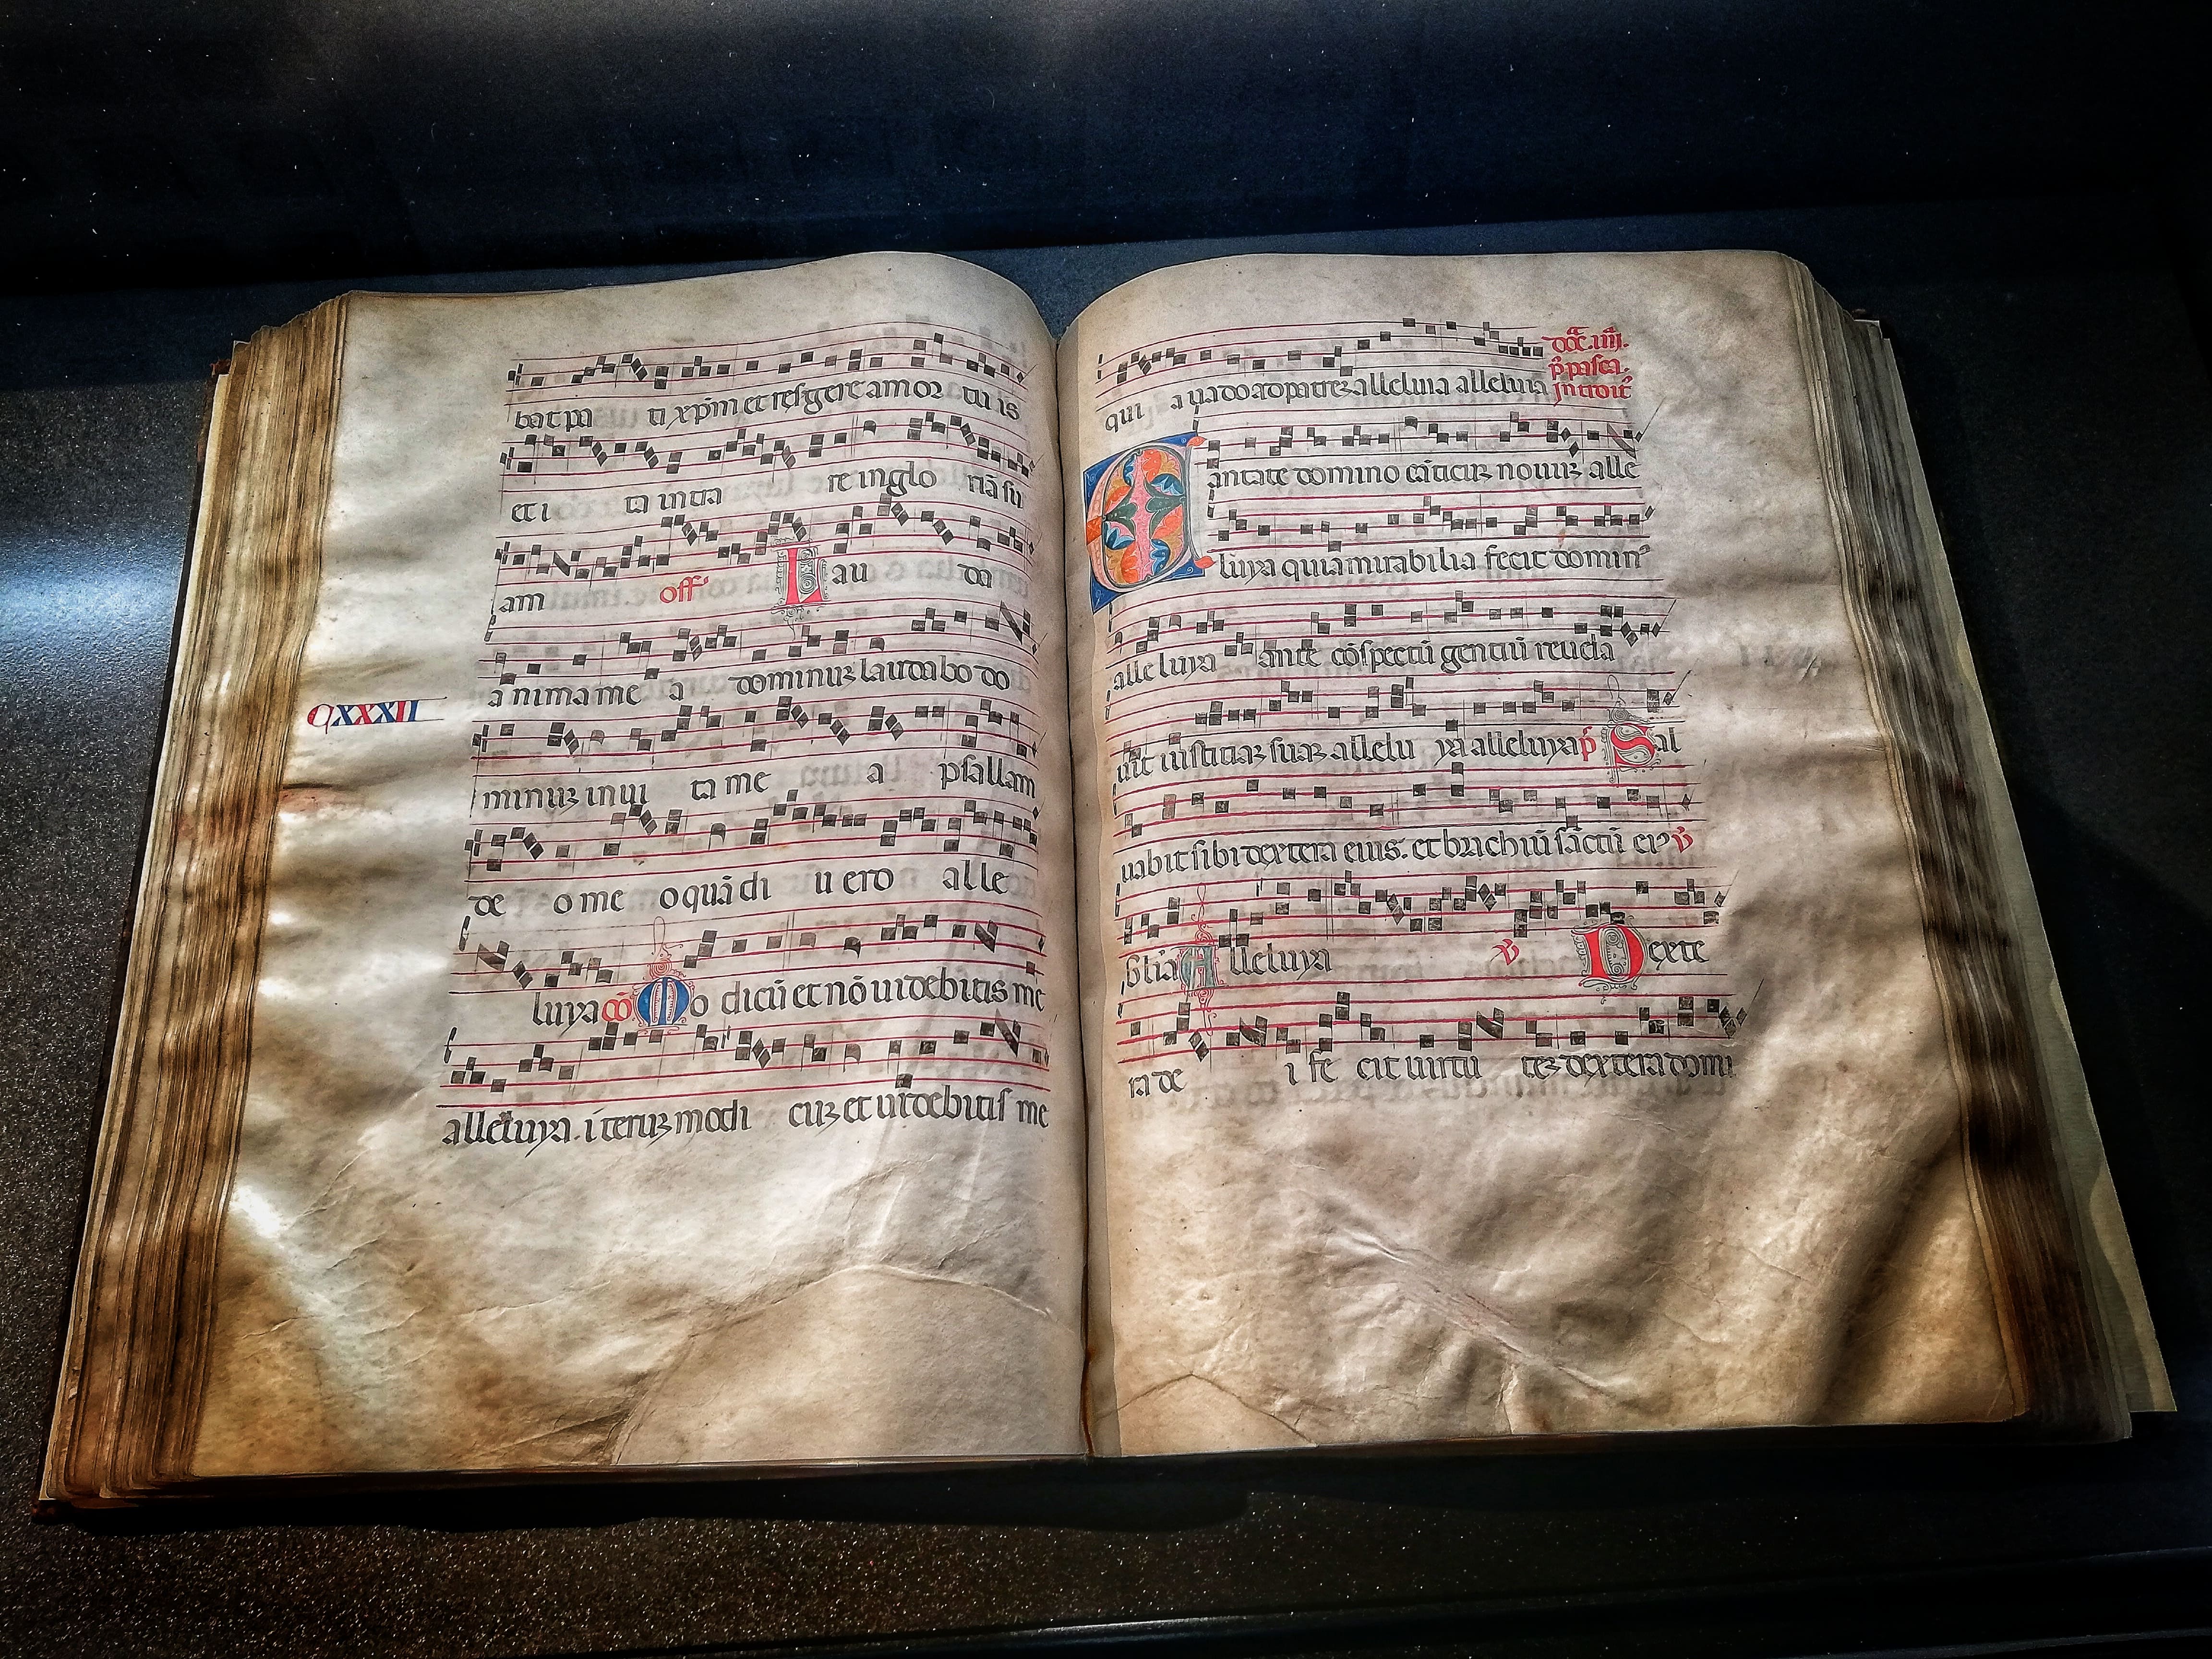 bat pa ti xp̄m et resurgere a mor tu is
et i ta intra re in glo riā su
am off' Lau da
a nima me a dominuꝫ laudabo do
CXXXII
minuꝫ in ui ta me a psallam
de o me o quādi u ero alle
luya cō Mo dicū et nō uidebitis me
alleluya. iteruꝫ modi cuꝫ et uidebitis me
qui a uado ad patreꝫ alleluia alleluia
doc̄. iiij.
p̄ pasca.
introit᷑
Cantate domino cāticuꝫ nouuꝫ alle
luya quia mirabilia fecit domin⁹
alleluya ante cōspectū gentiū reuela
uit iusticiaꝫ suaꝫ allelu ya alleluya p̄ Sal
uabit sibi dextera eius. et brachiū sāctū ei⁹ v̄
Gl̄ia Alleluya v̄ Dexte
ra de i fe cit uirtu teꝫ dextera domi